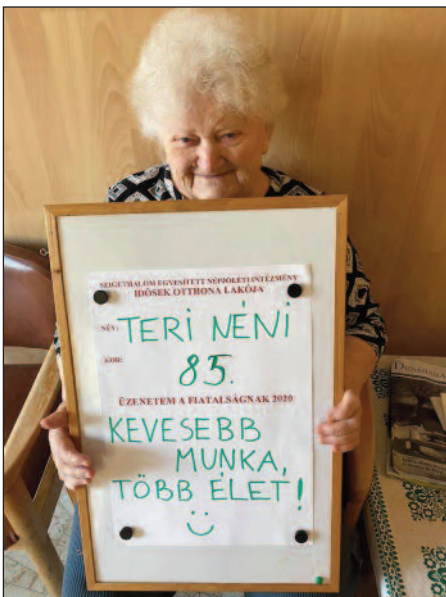 SZIGETHALOM EGYESÍTETT NÉPJÓLÉTI INTÉZMÉNY
IDŐSEK OTTHONA LAKÓJA
NÉV: TERI NÉNI
KORE:
85.
ÜZENETEM A FIATALSÁGNAK 2020
KEVESEBB
MUNKA,
TÖBB ÉLET!